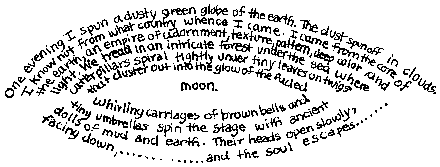 One evening I spun a dusty green globe of the earth. The dust spun off in clouds.
I know not from what country whence I came. I came from the core of
the earth, an empire of adornment, texture, pattern, deep color and
light. We tread in an intricate forest under the sea where
caterpillars spiral tightly under tiny leaves on twigs
that cluster out into the glow of the
moon.
whirling carriages of brown bells and
tiny umbrellas spin the stage with ancient
dolls of mud and earth. Their heads open slowly,
facing down,...........and the soul escapes........